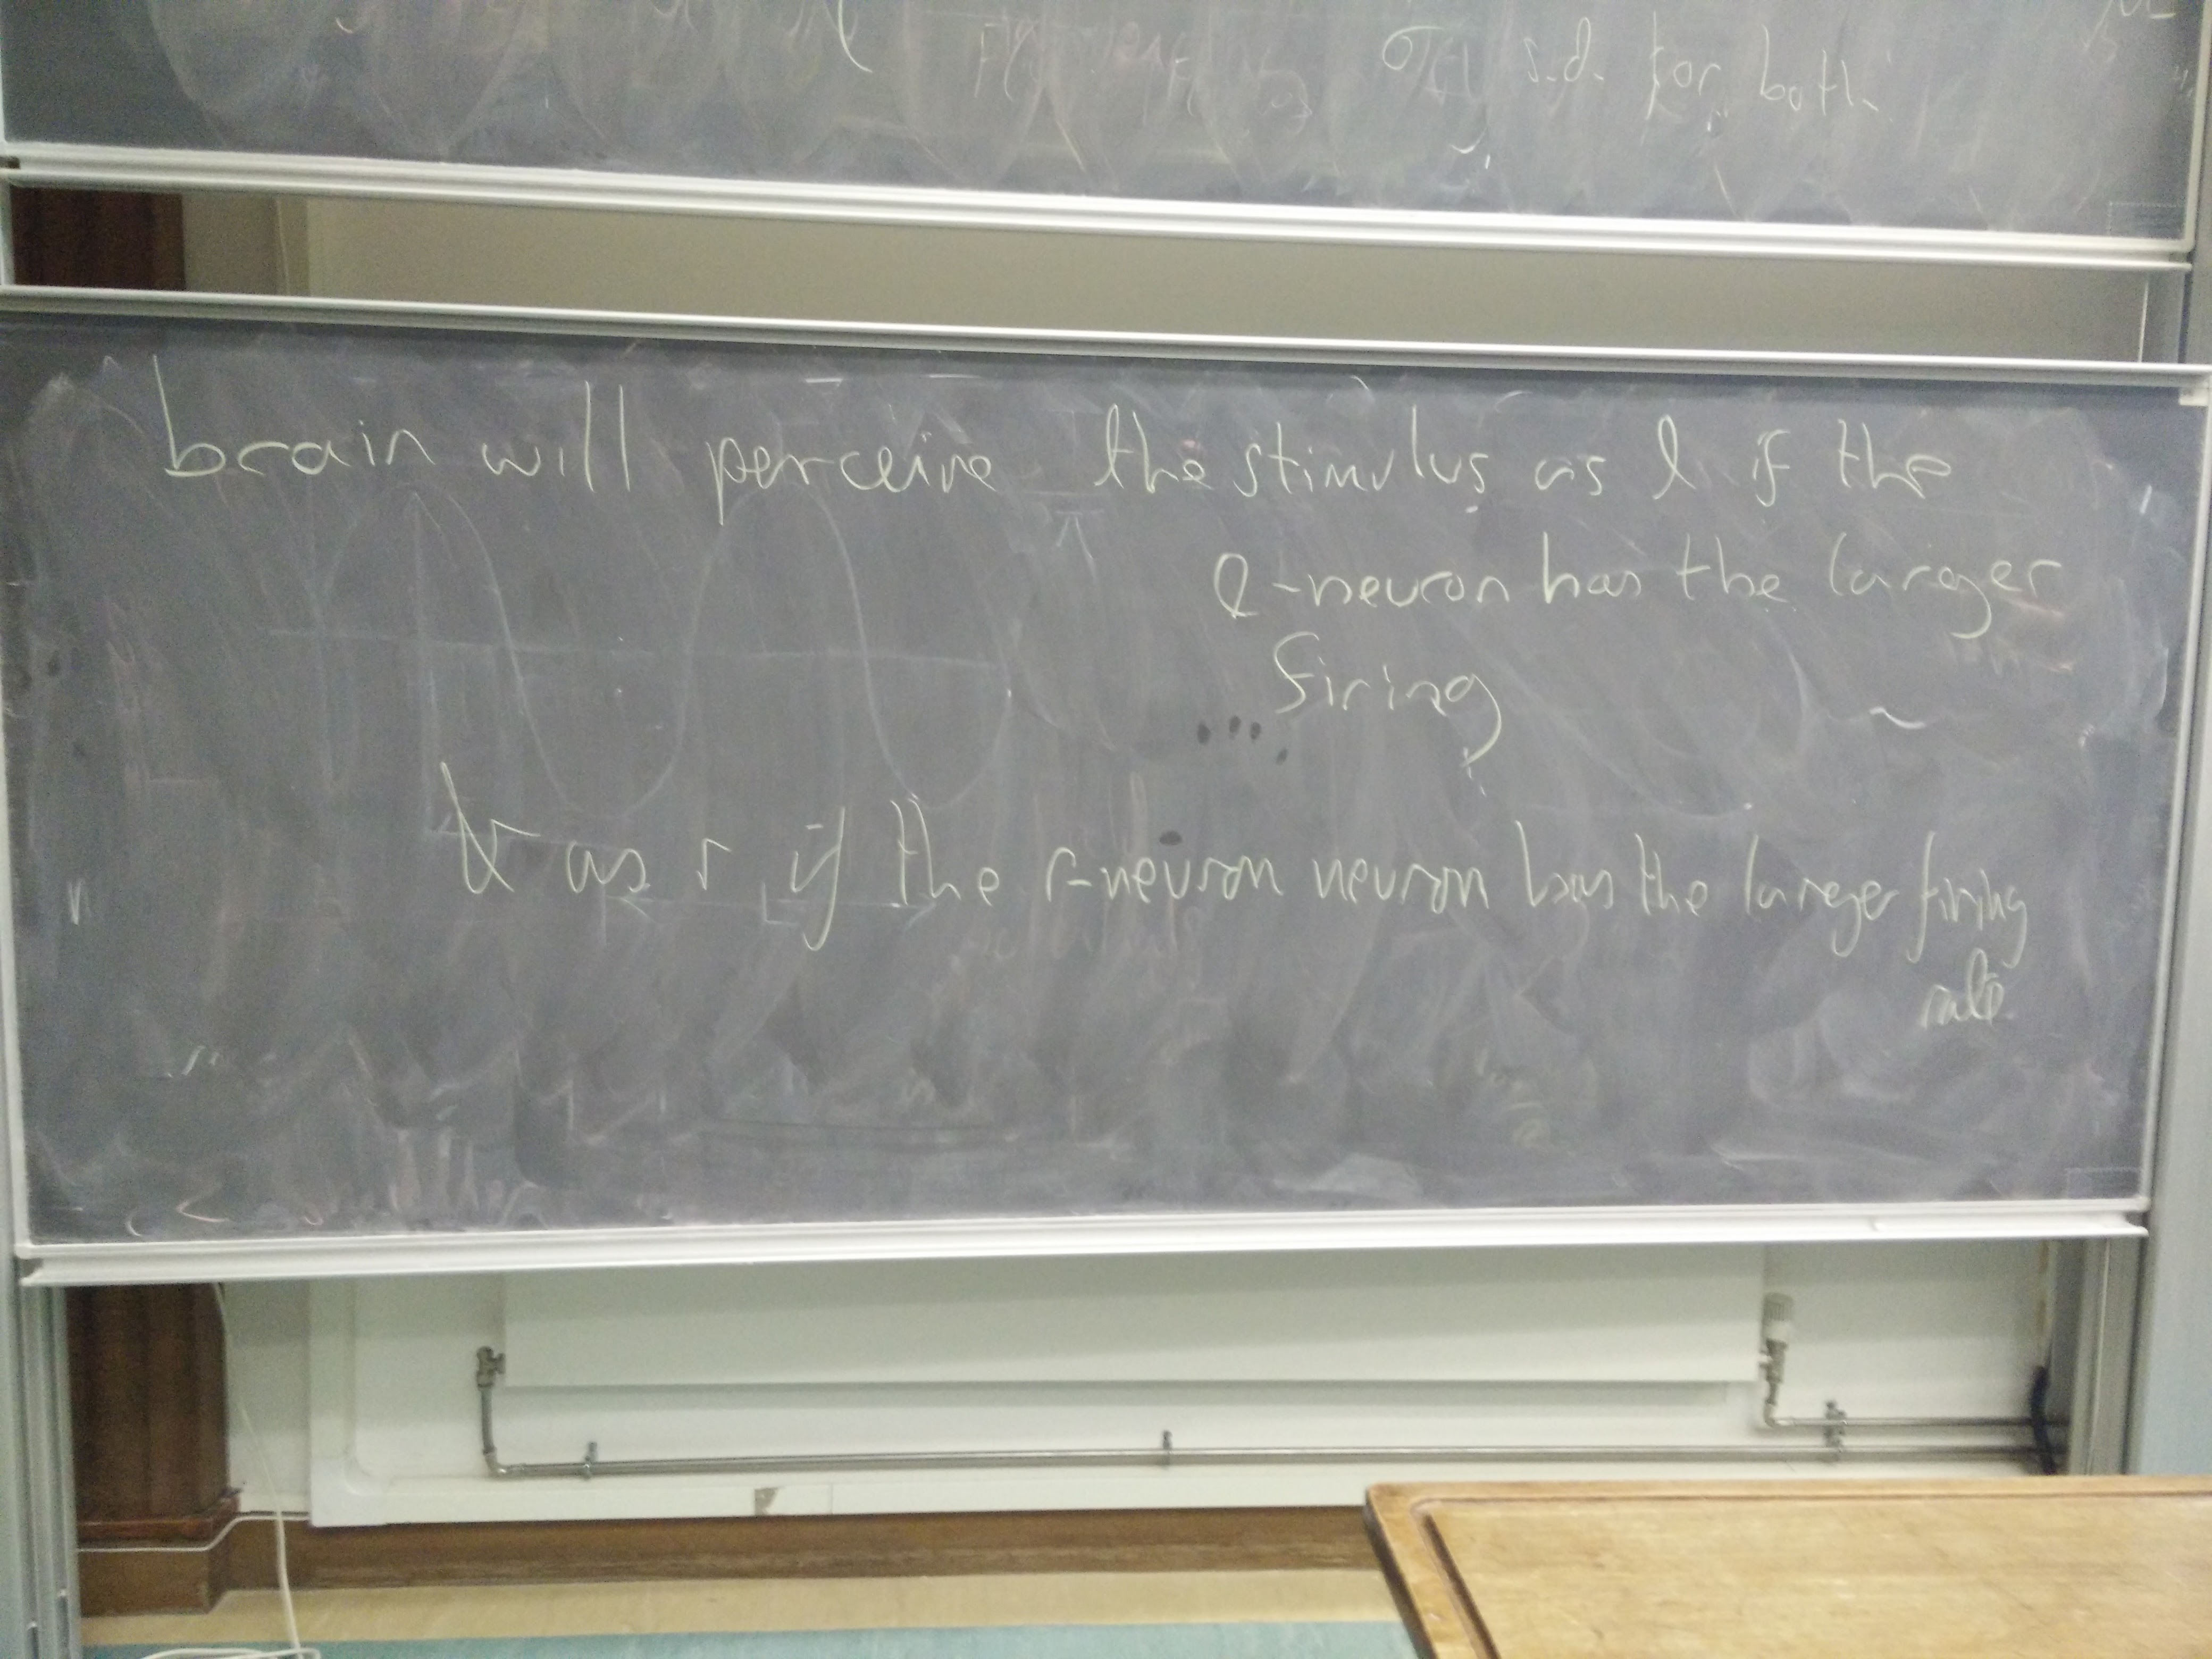 s.d. for both
brain will perceive the stimulus as l if the
l-neuron has the larger
firing
& as r if the r-neuron neuron has the larger firing
rate.